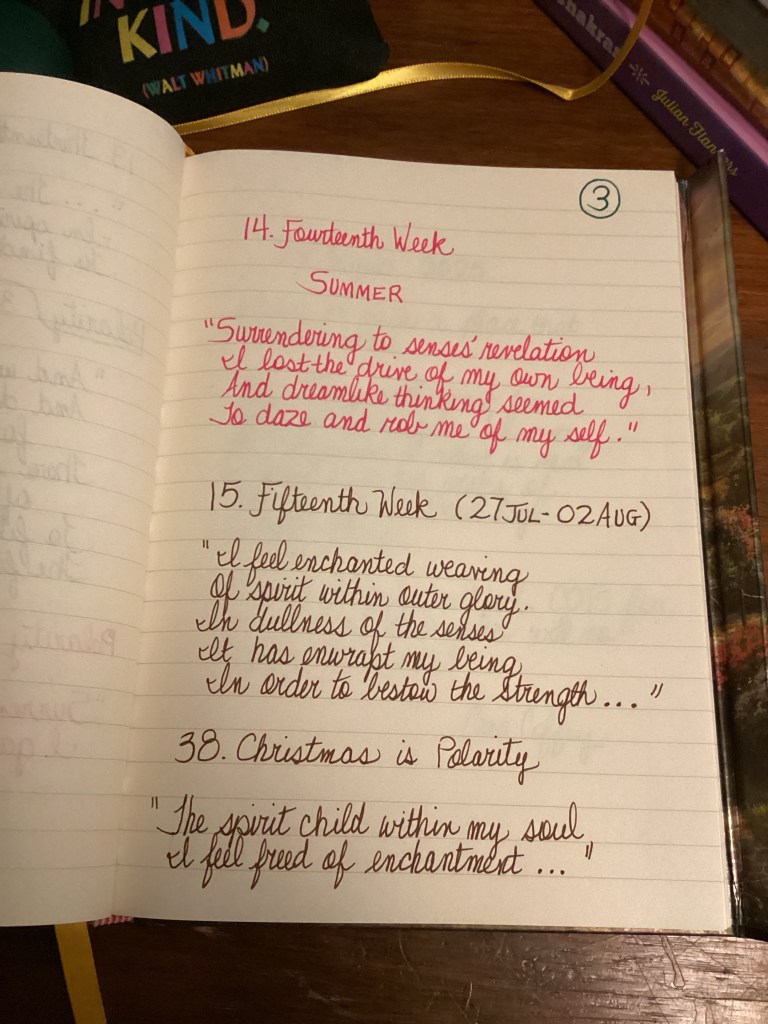 KIND.
(WALT WHITMAN)
Julian Flanders
3
14. Fourteenth Week
SUMMER
"Surrendering to senses' revelation
I lost the drive of my own being,
And dreamlike thinking seemed
To daze and rob me of my self."
15. Fifteenth Week (27JUL-02AUG)
"I feel enchanted weaving
of spirit within outer glory.
In dullness of the senses
It has enwrapt my being
In order to bestow the strength..."
38. Christmas is Polarity
"The spirit child within my soul
I feel freed of enchantment..."